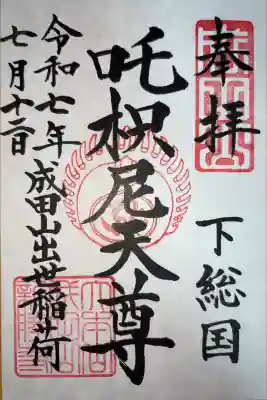 奉拝
下総国
吒枳尼天尊
成田山出世稲荷
令和七年
七月十二日